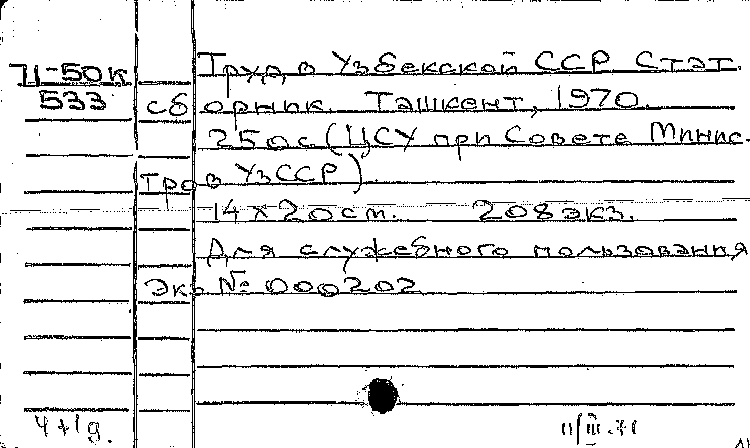 71-50к
533
Труд в Узбекской ССР Стат.
сборник. Ташкент, 1970.
250с (ЦСУ при Совете Минис-
тров УзССР)
14 х 20 см. 208 экз.
Для служебного пользования
Экз № 000202
4+1д.
11/III.71